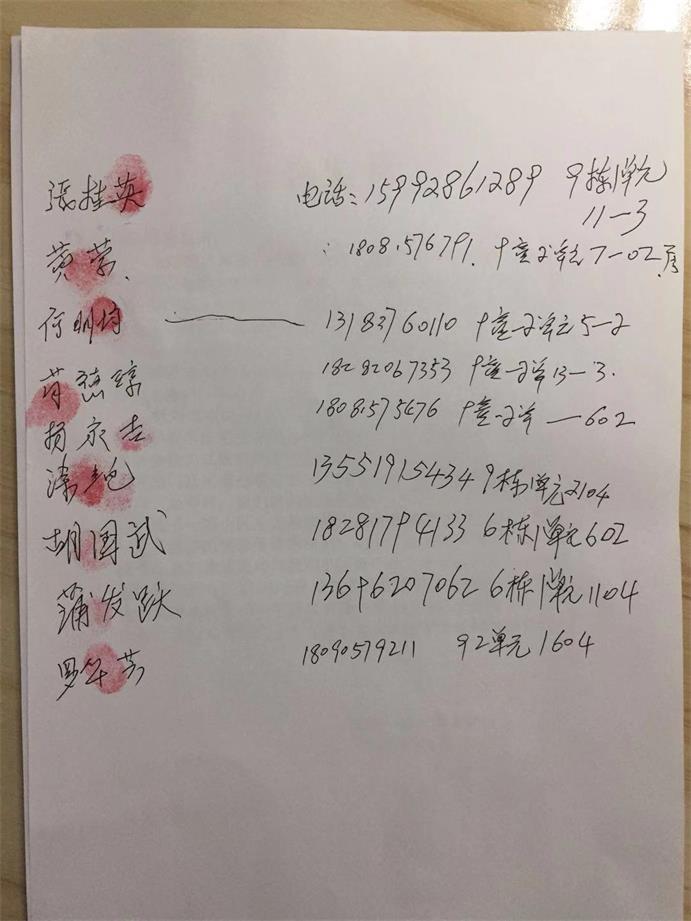 张桂英 电话：15992861289 9栋1单元
11-3
黄蓉. : 1808.576791. 9 2单元7-02
何明 13183760110 9 2单元5-2
肖德 18282067353 9 2单13-3.
杨永吉 18081575476 9 2单 602
13551915434 9栋1单元2104
胡国武 18281794133 6栋1单元602
蒲发跃 13696207062 6栋1单元1104
罗华芳 18090579211 92单元1604